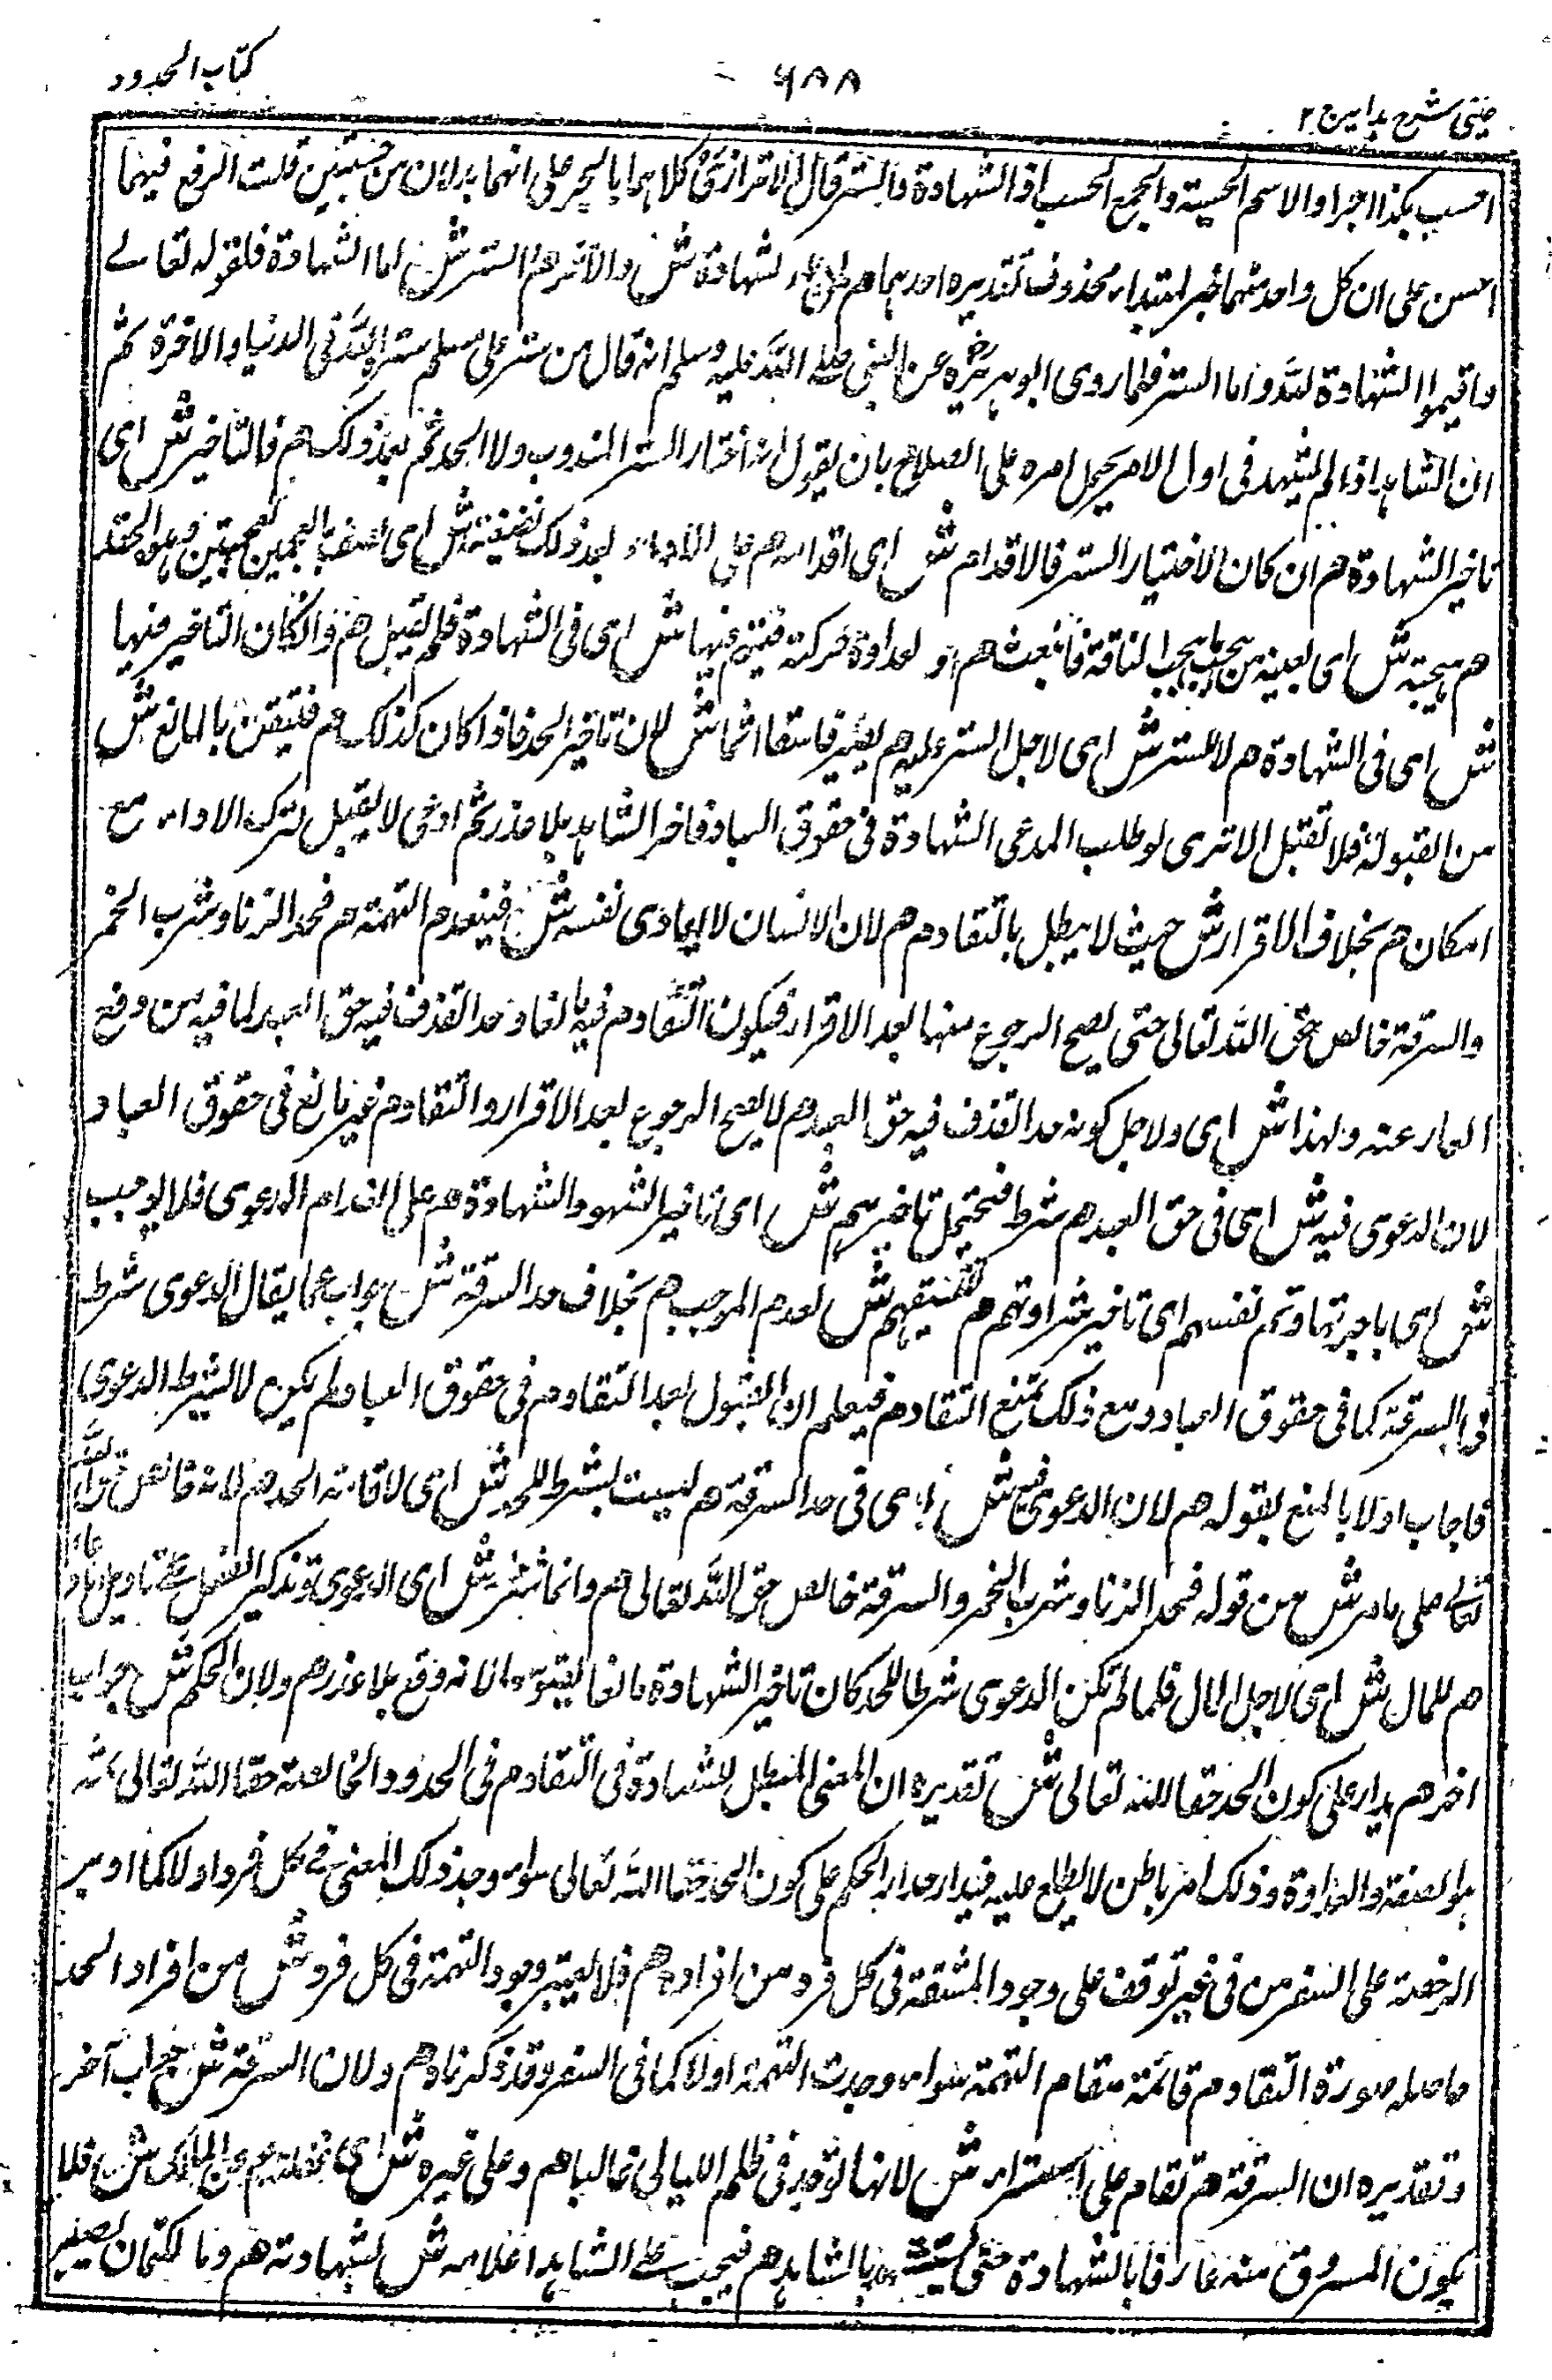 كتاب الحدود
٦٨٨
عينى شرح هداية ج ٢
احتسب بكذا اجرا والاسم الحسبة والجمع الحسب اداء الشهادة والستر قال الاترازى كلاهما بالجر على انهما بدلان من حسبتين قلت الرفع فيهما
احسن على ان كل واحد منهما خبر لمبتداء محذوف تقديره احدهما هم اداء لشهادة ش والآخر هم الستر ش اما الشهادة فلقوله تعالے
واقيموا الشهادة لله واما الستر فلما روى ابو هريرة عن النبى صلى الله عليه وسلم انه قال من ستر على مسلم ستره الله فى الدنيا والاخرة ثم
ان الشاهد اذا لم يشهد فى اول الامر يحمل امره على الصلاح بان يقول انه اختار الستر المندوب ولا الحد ثم بعد ذلك هم فالتاخير ش اى
تاخير الشهادة هم ان كان لاختيار الستر فالاقدام ش اى اقدامه هم على الاداء بعد ذلك لضغينة ش اى وهو الحقد
هم هيجته ش اى بعينه من الناقة فانبعث هم او لعداوة حركته فيتهم فيها ش اى فى الشهادة فلم تقبل هم وان كان التاخير منها
ش اى فى الشهادة هم لا للستر ش اى لاجل الستر عليه هم يصير فاسقا اثما ش لان تاخير الحد فاذا كان كذلك هم فتيقن بالمانع ش
من القبول فلا تقبل الا ترى لو طلب المدعى الشهادة فى حقوق العباد فاخر الشاهد بلا عذر ثم ادعى لا يقبل لترك الاداء مع
امكان هم بخلاف الاقرار ش حيث لا يبطل بالتقادم هم لان الانسان لا يعادى نفسه ش فينعدم التهمة هم فحد الزنا وشرب الخمر
والسرقة خالص حق الله تعالى حتى يصح الرجوع عنها بعد الاقرار فيكون التقادم فيه مانعا وحد القذف فيه حق العبد لما فيه من دفع
العار عنه ولهذا ش اى ولاجل كونه حد القذف فيه حق العبد هم لا يصح الرجوع بعد الاقرار والتقادم غير مانع فى حقوق العباد
لان الدعوى فيه ش اى فى حق العبد هم شرط فيحتمل تاخيرهم ش اى تاخير الشهود الشهادة هم على انعدام الدعوى فلا يوجب
ش اى تاخير شهادتهم هم تفسيقهم ش لعدم الموجب هم بخلاف حد السرقة ش جواب عما يقال الدعوى شرط
فى السرقة كما فى حقوق العباد ومع ذلك يمنع التقادم فيعلم ان القبول بعد التقادم فى حقوق العباد لم يكن لاشتراط الدعوى
فاجاب اولا بالمنع بقوله هم لان الدعوى فيه ش اى فى حد السرقة هم ليست بشرط للحد ش اى لاقامة الحد هم لانه خالص حق الله
تعالے على ما مر ش من قوله فحد الزنا وشرب الخمر والسرقة خالص حق الله تعالى هم وانما شرط ش اى الدعوى وتذكير الفعل على تاويل
هم للمال ش اى لاجل المال فلما لم تكن الدعوى شرطا للحد كان تاخير الشهادة مانعا لانه وقع بلا عذر هم ولان الحكم ش جواب
اخر هم يدار على كون الحد حقا لله تعالى ش تقديره ان المعنى المبطل للشهادة فى التقادم فى الحدود الخالصة حقا لله تعالى
هو الضغينة والعداوة وذلك امر باطن لا يطلع عليه فيدار الحكم على كون الحد حقا لله تعالى سواء وجد ذلك المعنى فى كل فرد او لا كما ادير
الرخصة على السفر من غير توقف على وجود المشقة فى كل فرد من افراده هم فلا يعتبر وجود التهمة فى كل فرد ش من افراد الحد
حاصله صورة التقادم قائمة مقام التهمة سواء وجدت التهمة او لا كما فى السفر وقد ذكرناه هم ولان السرقة ش جواب آخر
وتقديره ان السرقة هم تقام على الاستسرار ش لانها توجد فى ظلم الليالى غالبا هم وعلى غيره ش اى هم من المالك ش فلا
يكون المسروق منه عارفا بالشهادة حتى يستشهد بالشاهد هم فيجب على الشاهد اعلامه ش بشهادته هم وبالكتمان يصير